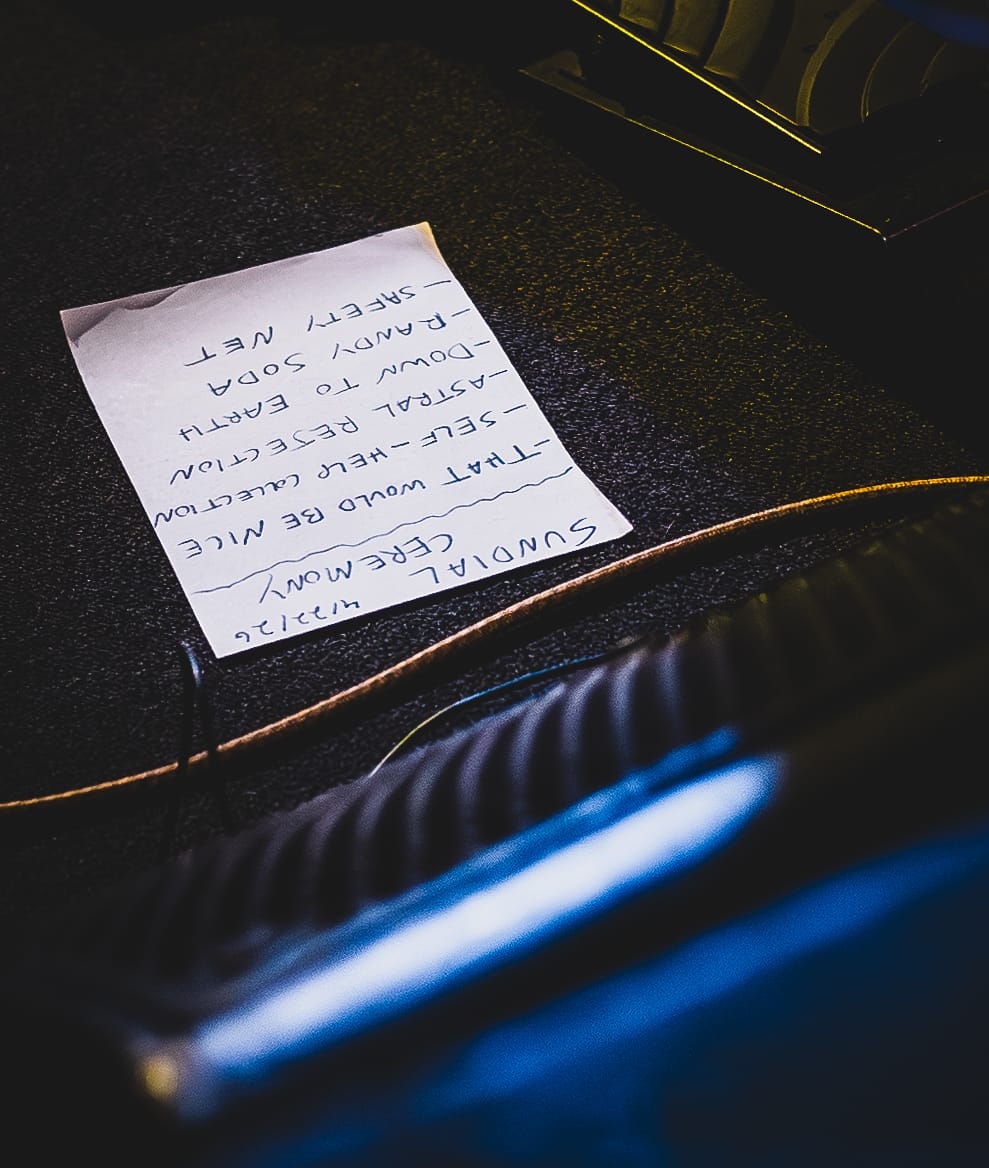 SUNDIAL 4/22/26
CEREMONY
- THAT WOULD BE NICE
- SELF-HELP COLLECTION
- ASTRAL REJECTION
- DOWN TO EARTH
- RANDY SODA
- SAFETY NET